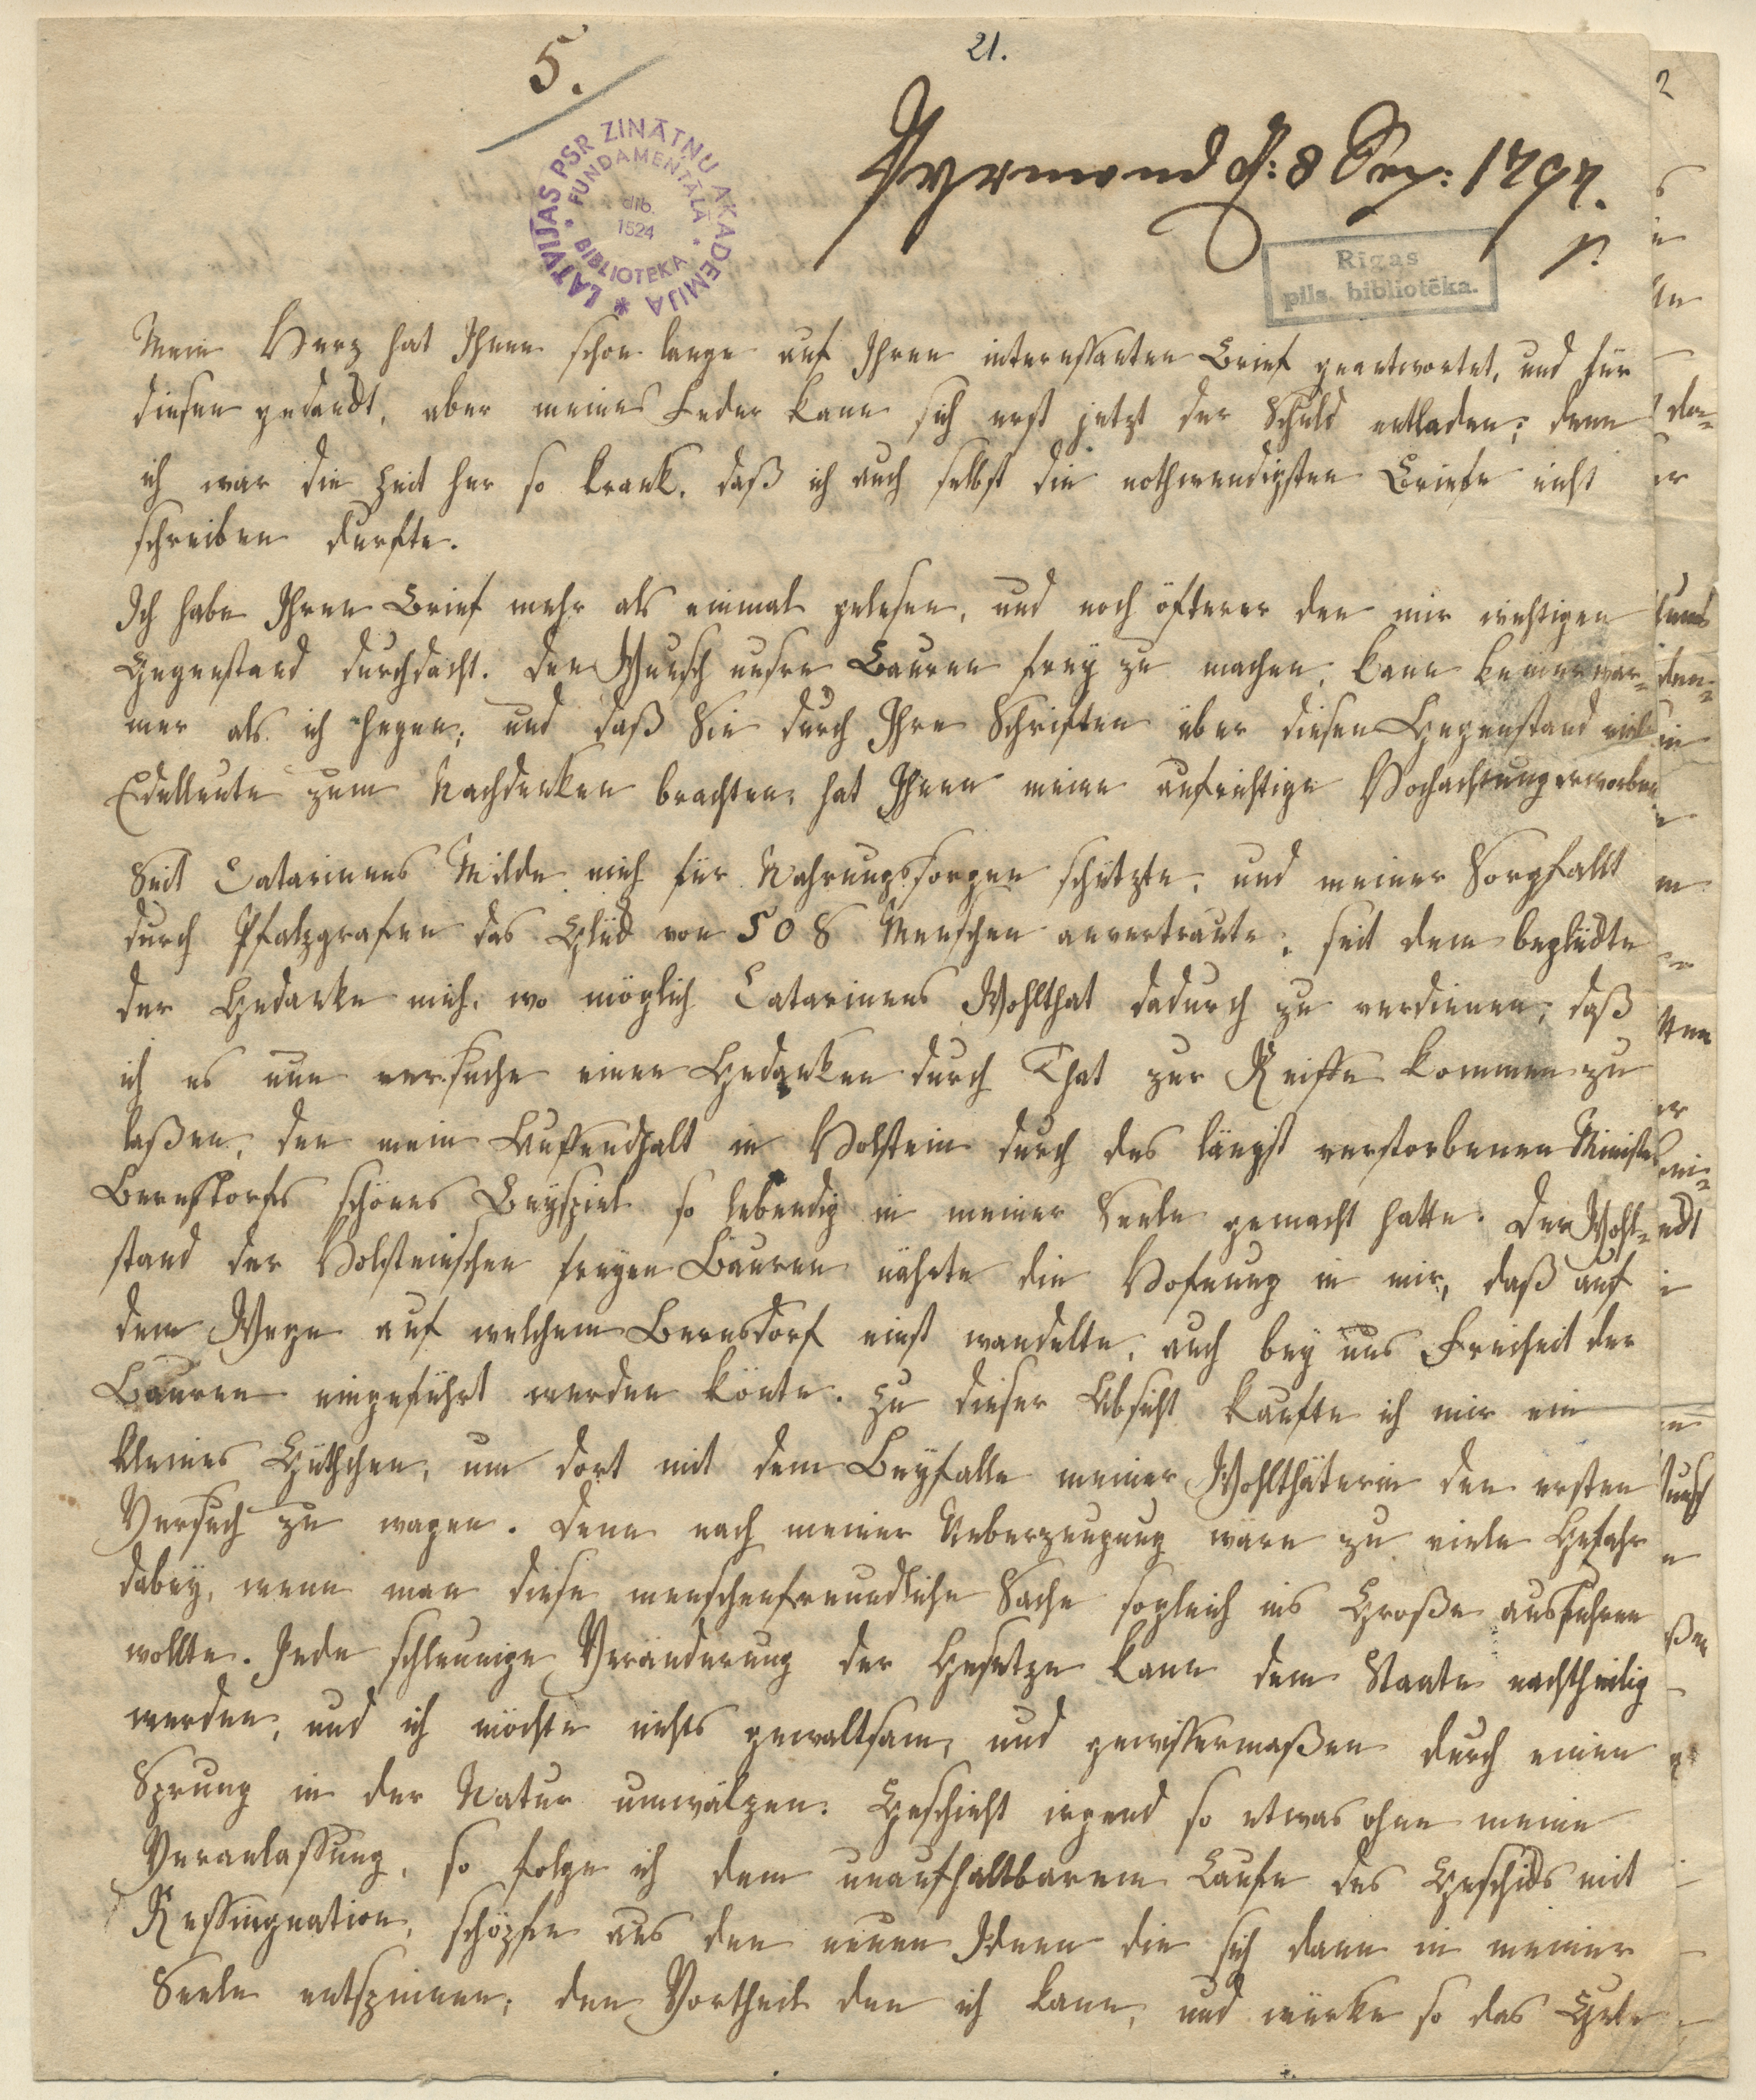 5.
21.
Pyrmond d: 8 Sep: 1797.
LATVIJAS PSR ZINĀTŅU AKADEMIJA
FUNDAMENTĀLĀ BIBLIOTEKA
dib.
1524
Rīgas
pils. bibliotēka.
Mein Herz hat Ihnen schon lange auf Ihren interessanten Brief geantwortet, und für
diesen gedanckt, aber meine Feder kann sich erst jetzt der Schuld entladen; denn
ich war die Zeit her so krank, daß ich auch selbst die nothwendigsten Briefe nicht
schreiben durfte.
Ich habe Ihren Brief mehr als einmal gelesen, und noch öfterer den mir wichtigen
Gegenstand durchdacht. Den Wunsch unsre Bauren frey zu machen, kann keiner war=
mer als ich hegen; und daß Sie durch Ihre Schriften über diesen Gegenstand viele
Edelleute zum Nachdenken brachten, hat Ihnen meine aufrichtige Hochachtung erworben
Seit Catarinens Milde mich für Nahrungssorgen schützte, und meiner Sorgfallt
durch Pfalzgrafen das Glück von 508 Menschen anvertraute; seit dem beglückte
der Gedanke mich, wo möglich Catarinens Wohlthat dadurch zu verdienen, daß
ich es nun versuche einen Gedanken durch That zur Reiffe kommen zu
laßen, den mein Auffendhalt in Holstein durch des längst verstorbenen Ministers
Bernstorfs schönes Beyspiel so lebendig in meiner Seele gemacht hatte. Der Wohl=
stand der Holsteinschen freyen Bauren nährte die Hofnung in mir, daß auf
dem Wege auf welchem Bernsdorf einst wandelte, auch bey uns Freiheit der
Bauren eingeführt werden könte. Zu dieser Absicht kaufte ich mir ein
kleines Gütchen, um dort mit dem Beyfalle meiner Wohlthäterin den ersten
Versuch zu wagen. Denn nach meiner Ueberzeugung wäre zu viele Gefahr
dabey, wenn man diese menschenfreundliche Sache sogleich ins Große ausführen
wollte. Jede schleunige Veränderung der Gesetze kann dem Staate nachtheilig
werden, und ich möchte nichts gewaltsam, und gewissermaßen durch einen
Sprung in der Natur umwälzen. Geschieht irgend so etwas ohne meine
Veranlassung, so folge ich dem unaufhaltbarem Laufe des Geschicks mit
Ressingnation, schöpfe aus den neuen Ideen die sich dann in meiner
Seele entspinnen, den Vortheil den ich kann, und würke so das Gute